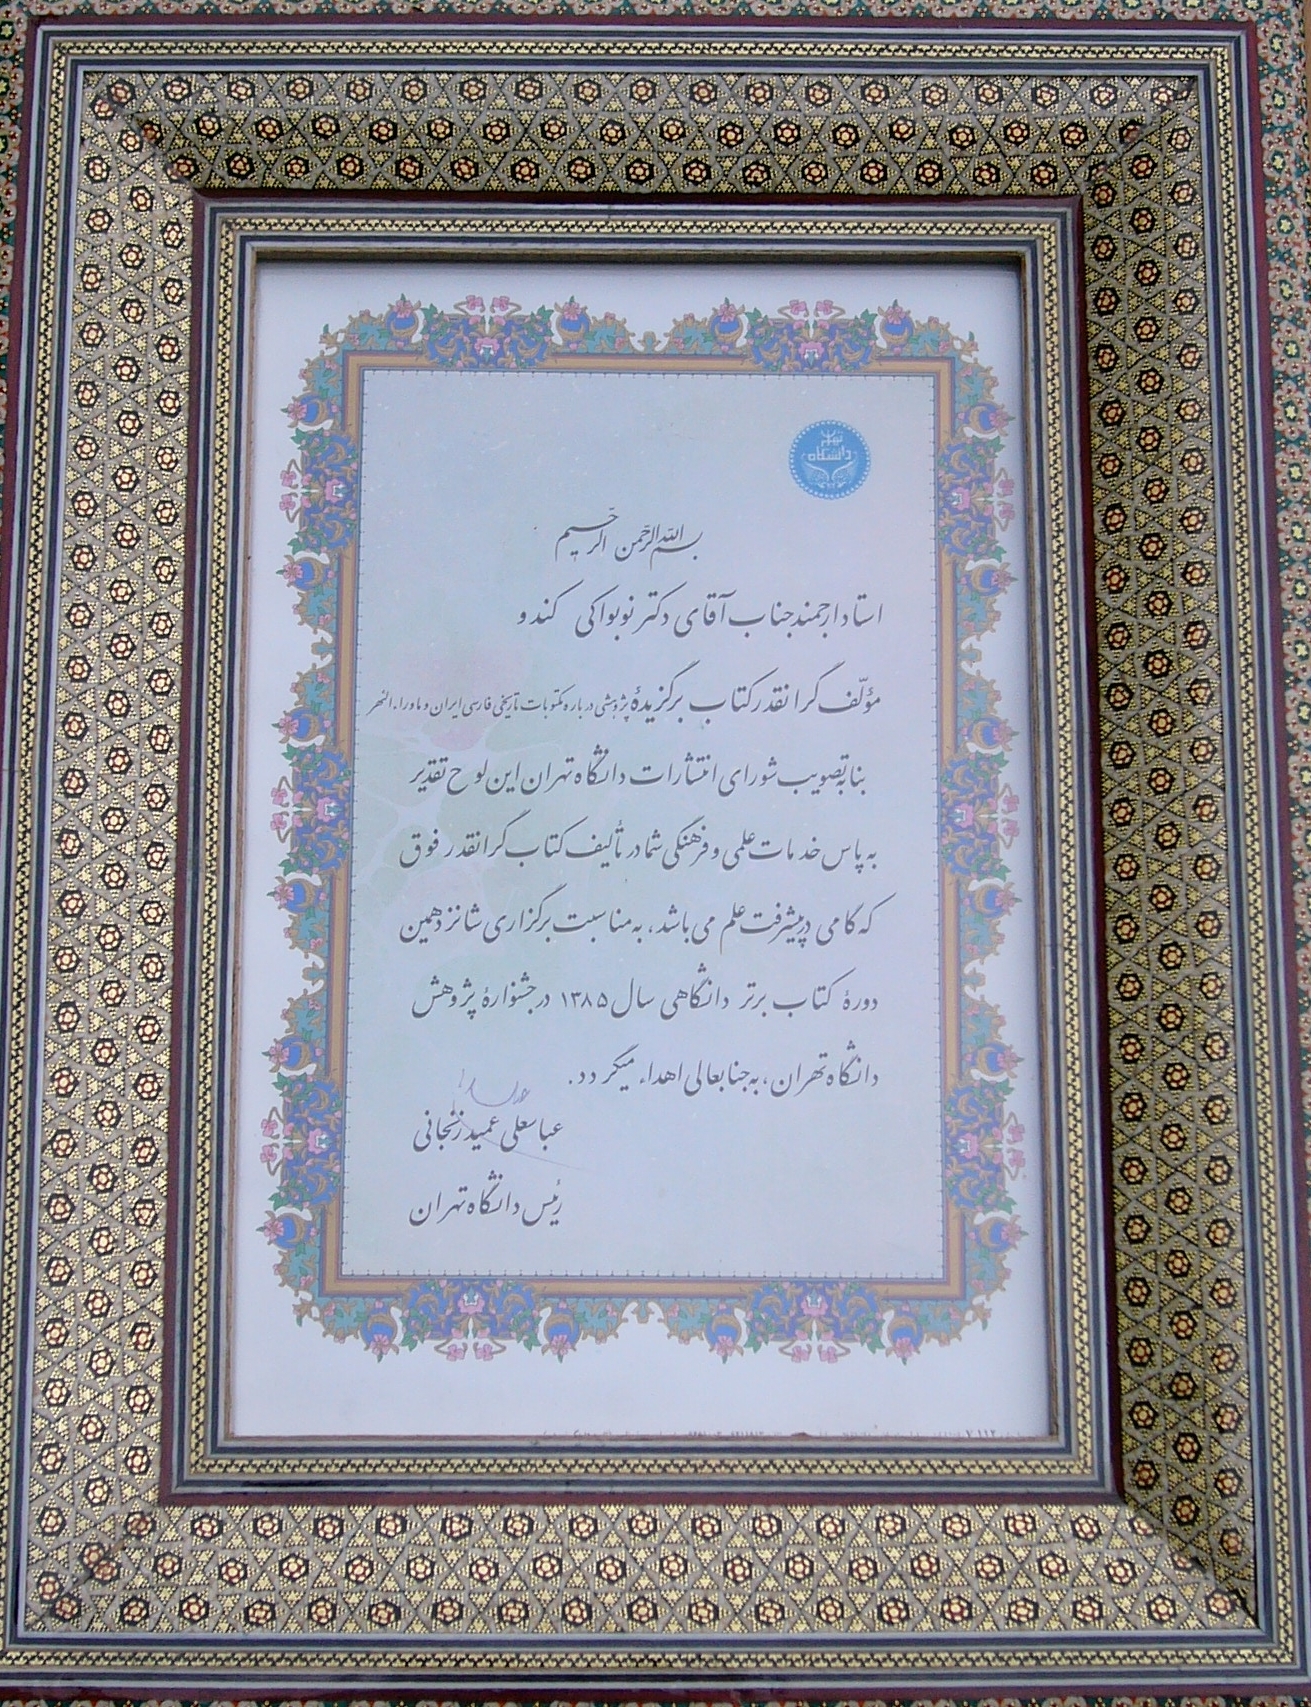 دانشگاه تهران
بسم الله الرحمن الرحیم
استاد ارجمند جناب آقای دکتر نوبواکی کندو
مؤلّف گرانقدر کتاب برگزیدهٔ پژوهشی درباره مکتوبات تاریخی فارسی ایران و ماوراء النهر
بنا به تصویب شورای انتشارات دانشگاه تهران این لوح تقدیر
به پاس خدمات علمی و فرهنگی شما در تألیف کتاب گرانقدر فوق
که گامی در پیشرفت علم می باشد، به مناسبت برگزاری شانزدهمین
دورهٔ کتاب برتر دانشگاهی سال ۱۳۸۵ در جشنوارهٔ پژوهش
دانشگاه تهران، به جنابعالی اهداء میگردد.
عباسعلی عمید زنجانی
رئیس دانشگاه تهران